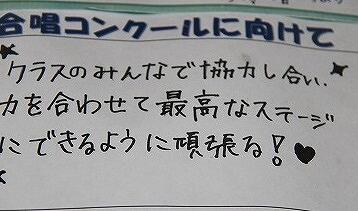 合唱コンクールに向けて
クラスのみんなで協力し合い、
力を合わせて最高なステージ
にできるように頑張る!♥